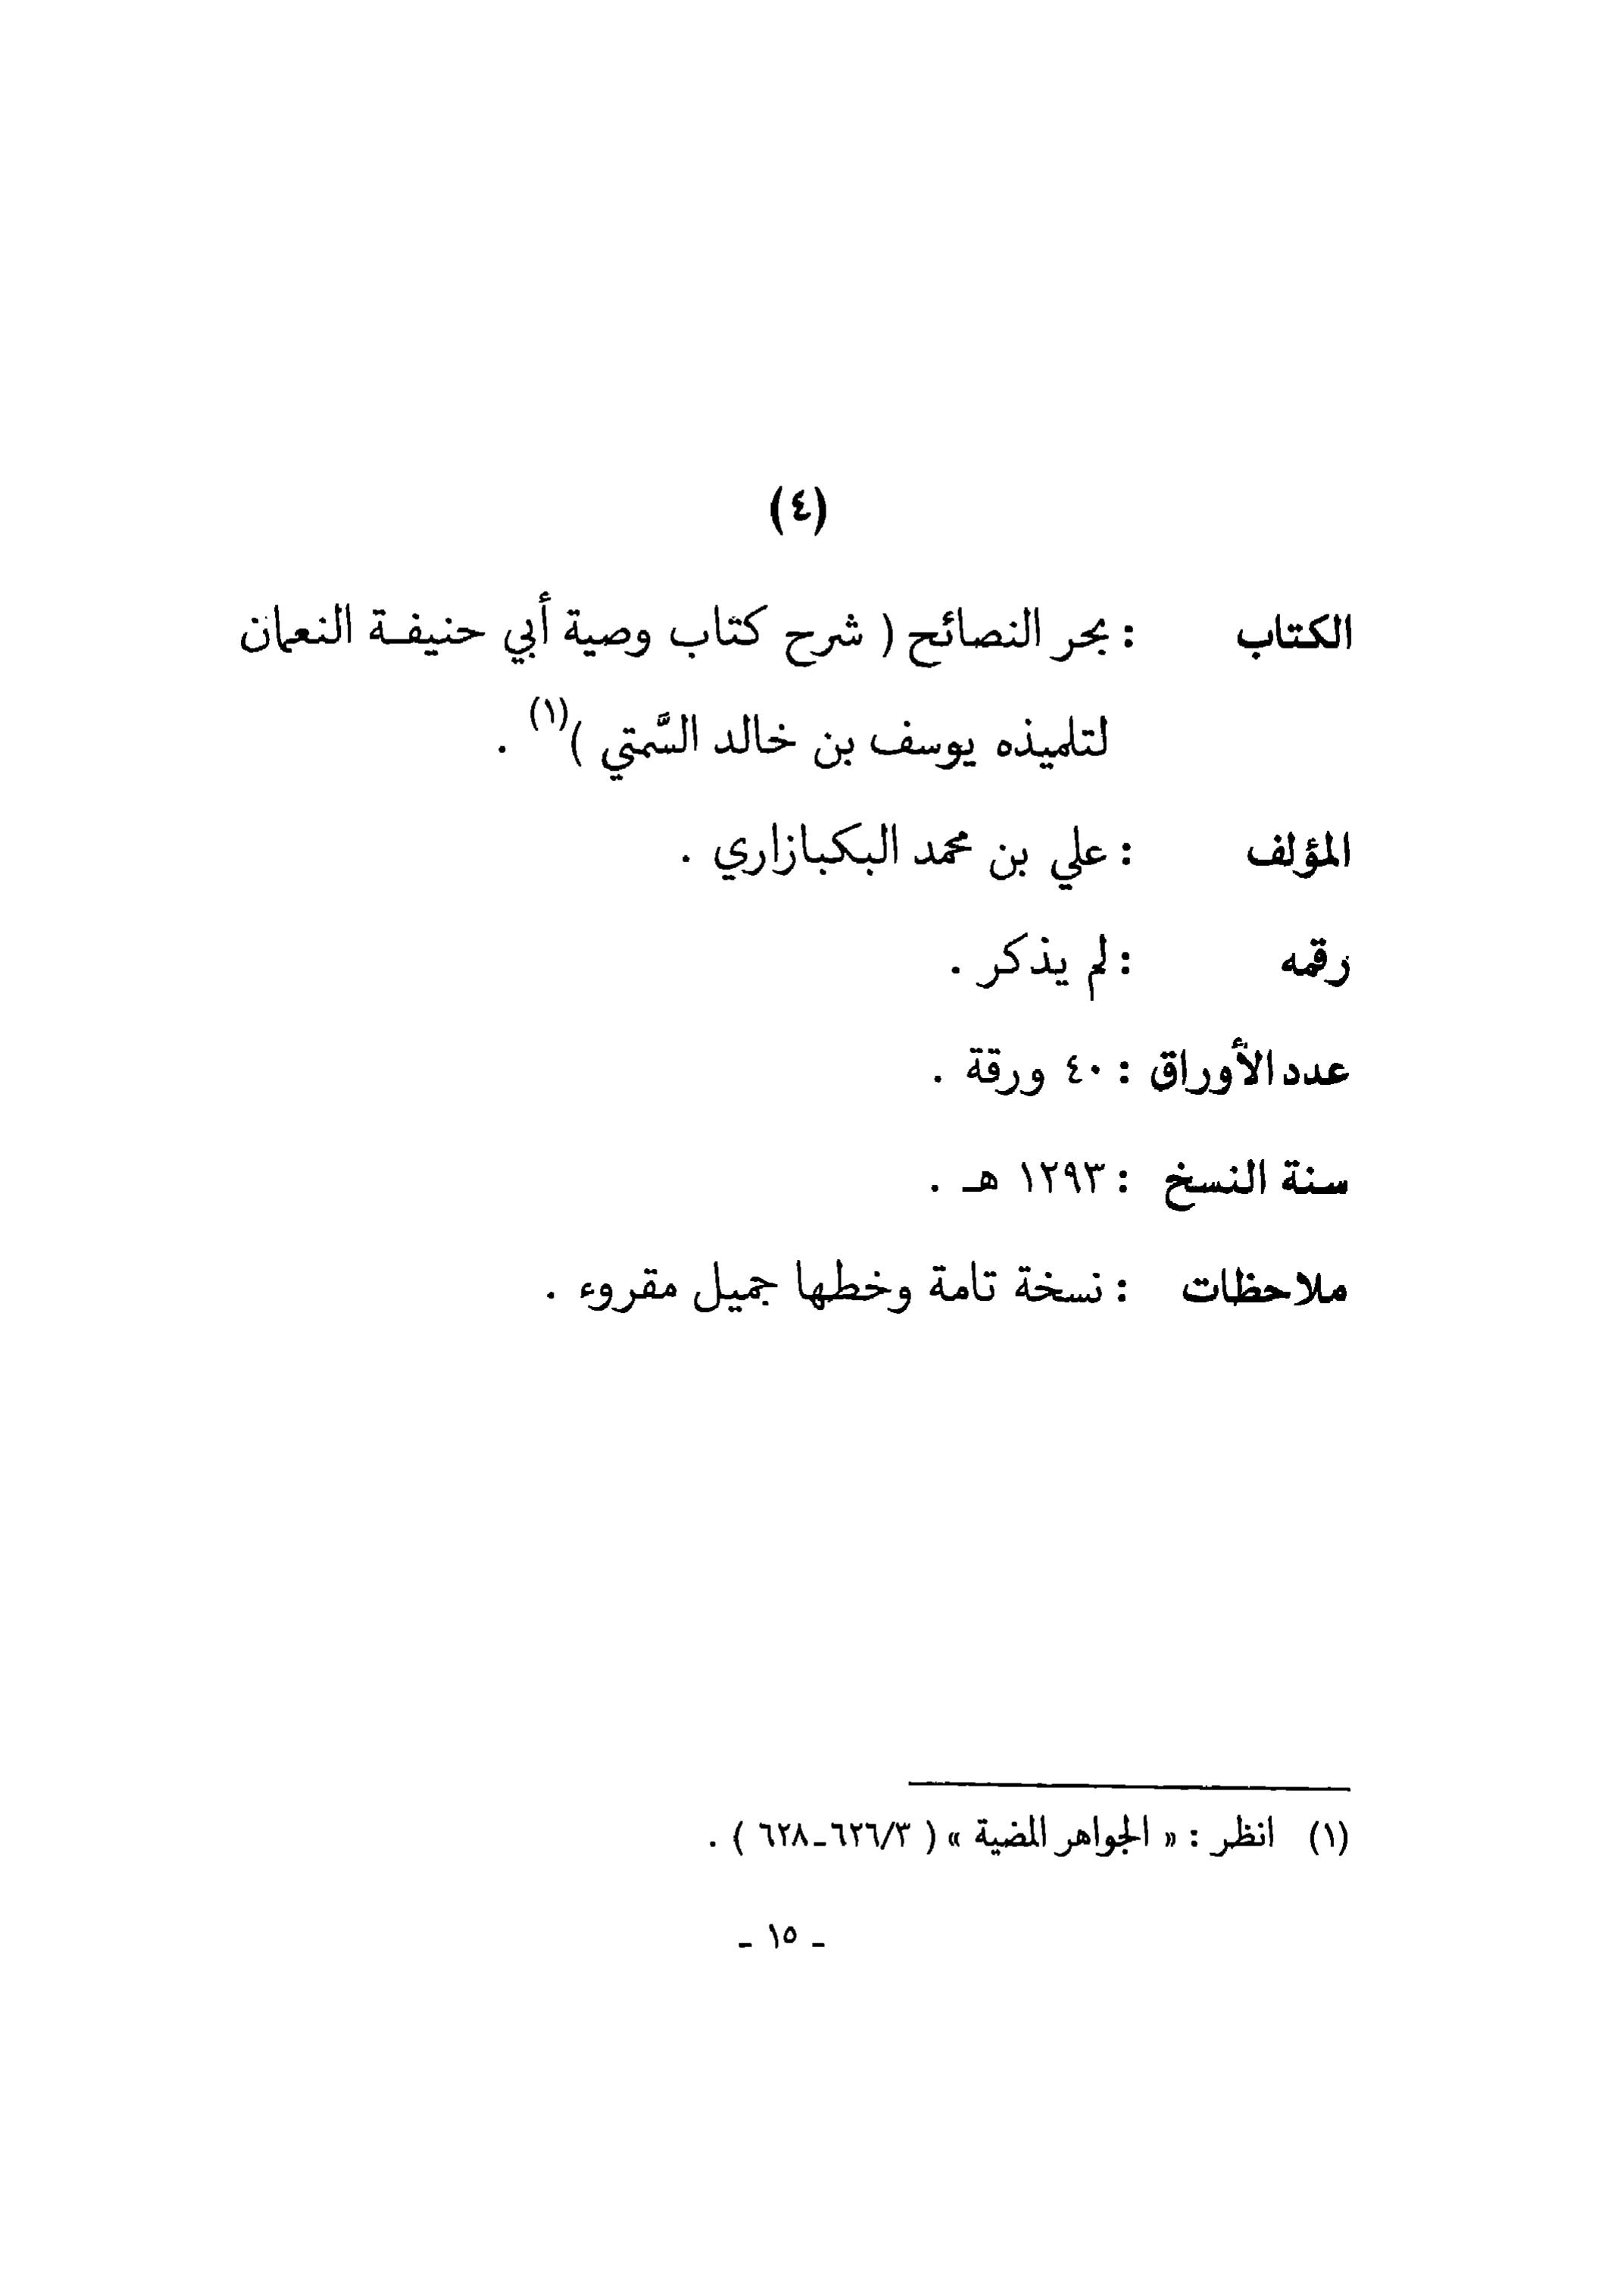 (٤)
الكتاب : بحر النصائح ( شرح كتاب وصية أبي حنيفة النعمان
لتلميذه يوسف بن خالد السَّمتي )(١) .
المؤلف : علي بن محمد البكبازاري .
رقمه : لم يذكر .
عدد الأوراق : ٤٠ ورقة .
سنة النسخ : ١٢٩٣ هـ .
ملاحظات : نسخة تامة وخطها جميل مقروء .
(١) انظر : « الجواهر المضية » ( ٣/٦٢٦ـ٦٢٨ ) .
ـ ١٥ ـ